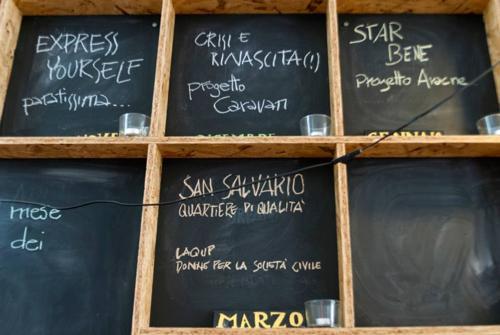 EXPRESS
YOURSELF
paratissima...
NOVEMBRE
CRISI E
RINASCITA(!)
progetto
Caravan
DICEMBRE
STAR
BENE
Progetto Aracne
GENNAIO
mese
dei
SAN SALVARIO
QUARTIERE DI QUALITA'
LAQUP
DONNE PER LA SOCIETÀ CIVILE
MARZO